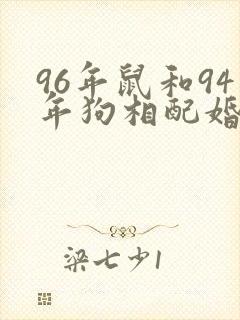 96年鼠和94
年狗相配婚
梁七少1